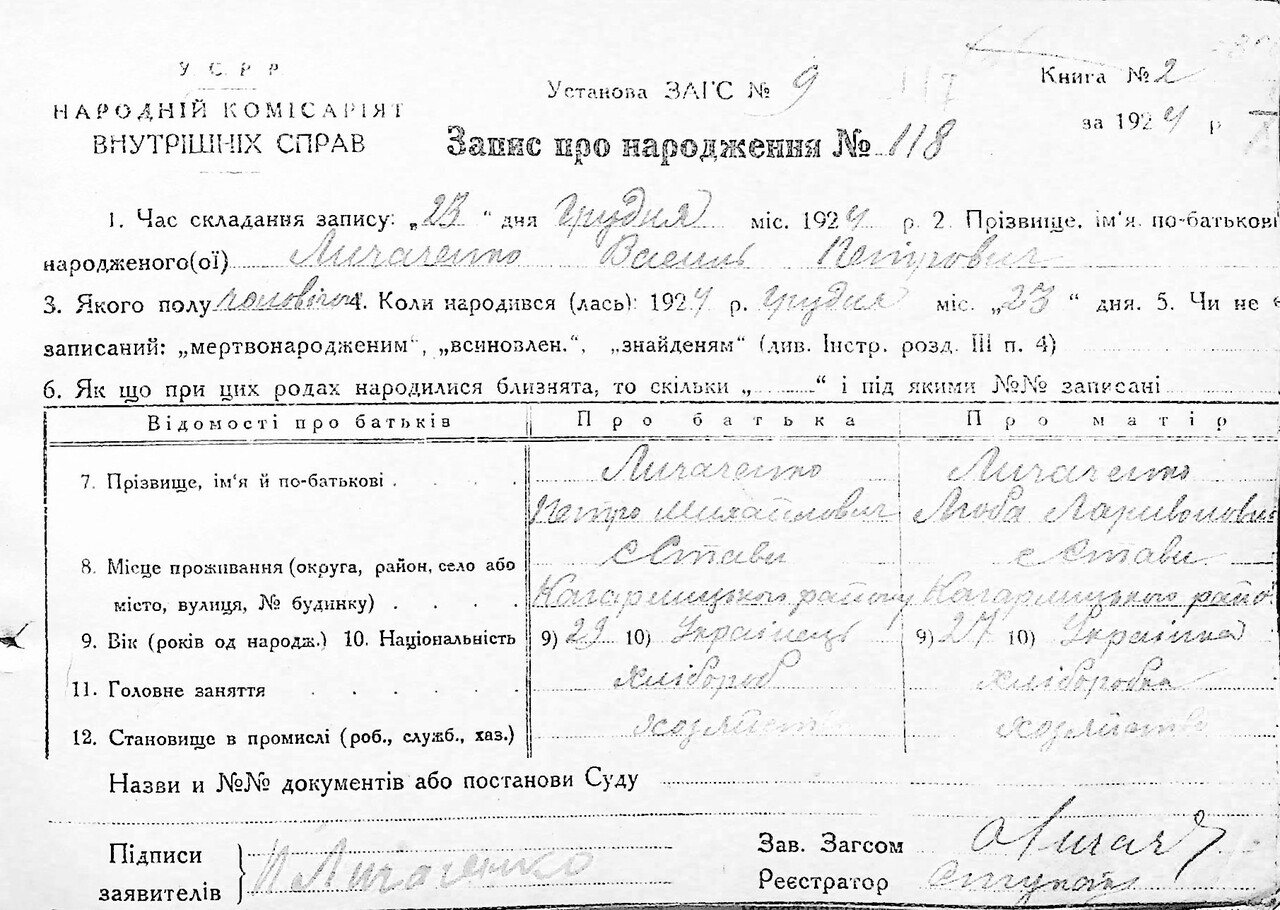 У. С. Р. Р.
НАРОДНІЙ КОМІСАРІЯТ
ВНУТРІШНІХ СПРАВ
Установа ЗАГС № 9
117
Книга № 2
за 1924 р
Запис про народження № 118
1. Час складання запису: „23“ дня Грудня міс. 1924 р. 2. Прізвище, ім'я, по-батькові
народженого(ої) Личаченко Василь Петрович
3. Якого полу чоловічої 4. Коли народився (лась): 1924 р. Грудня міс. „23“ дня. 5. Чи не є
записаний: „мертвонародженим“, „всиновлен.“, „знайденям“ (див. Інстр. розд. III п. 4)
6. Як що при цих родах народилися близнята, то скільки „ “ і під якими №№ записані
Відомості про батьків Про батька Про матір
7. Прізвище, ім'я й по-батькові Личаченко Личаченко
Петро Михайлович Люба Ларивоновн
8. Місце проживання (округа, район, село або с Стави с Стави
місто, вулиця, № будинку) Кагарлицького району Кагарлицького райо
9. Вік (років од народж.) 10. Національність 9) 29 10) Українець 9) 27 10) Українка
11. Головне заняття хлібороб хліборобка
12. Становище в промислі (роб., служб., хаз.)
Назви и №№ документів або постанови Суду
Підписи
заявителів П Личаченко
Зав. Загсом
Реєстратор